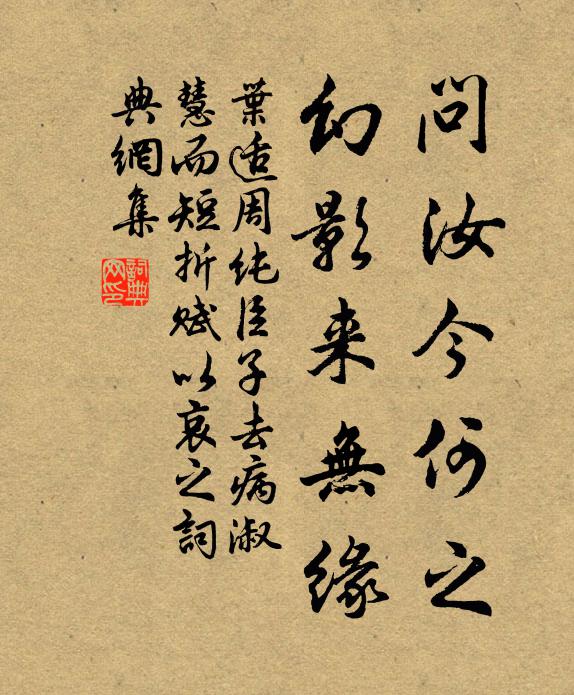 問汝今何之
幻影来無緣
葉适周純臣子去病淑
慧而短折賦以哀之詞
典網集
詞典
网印